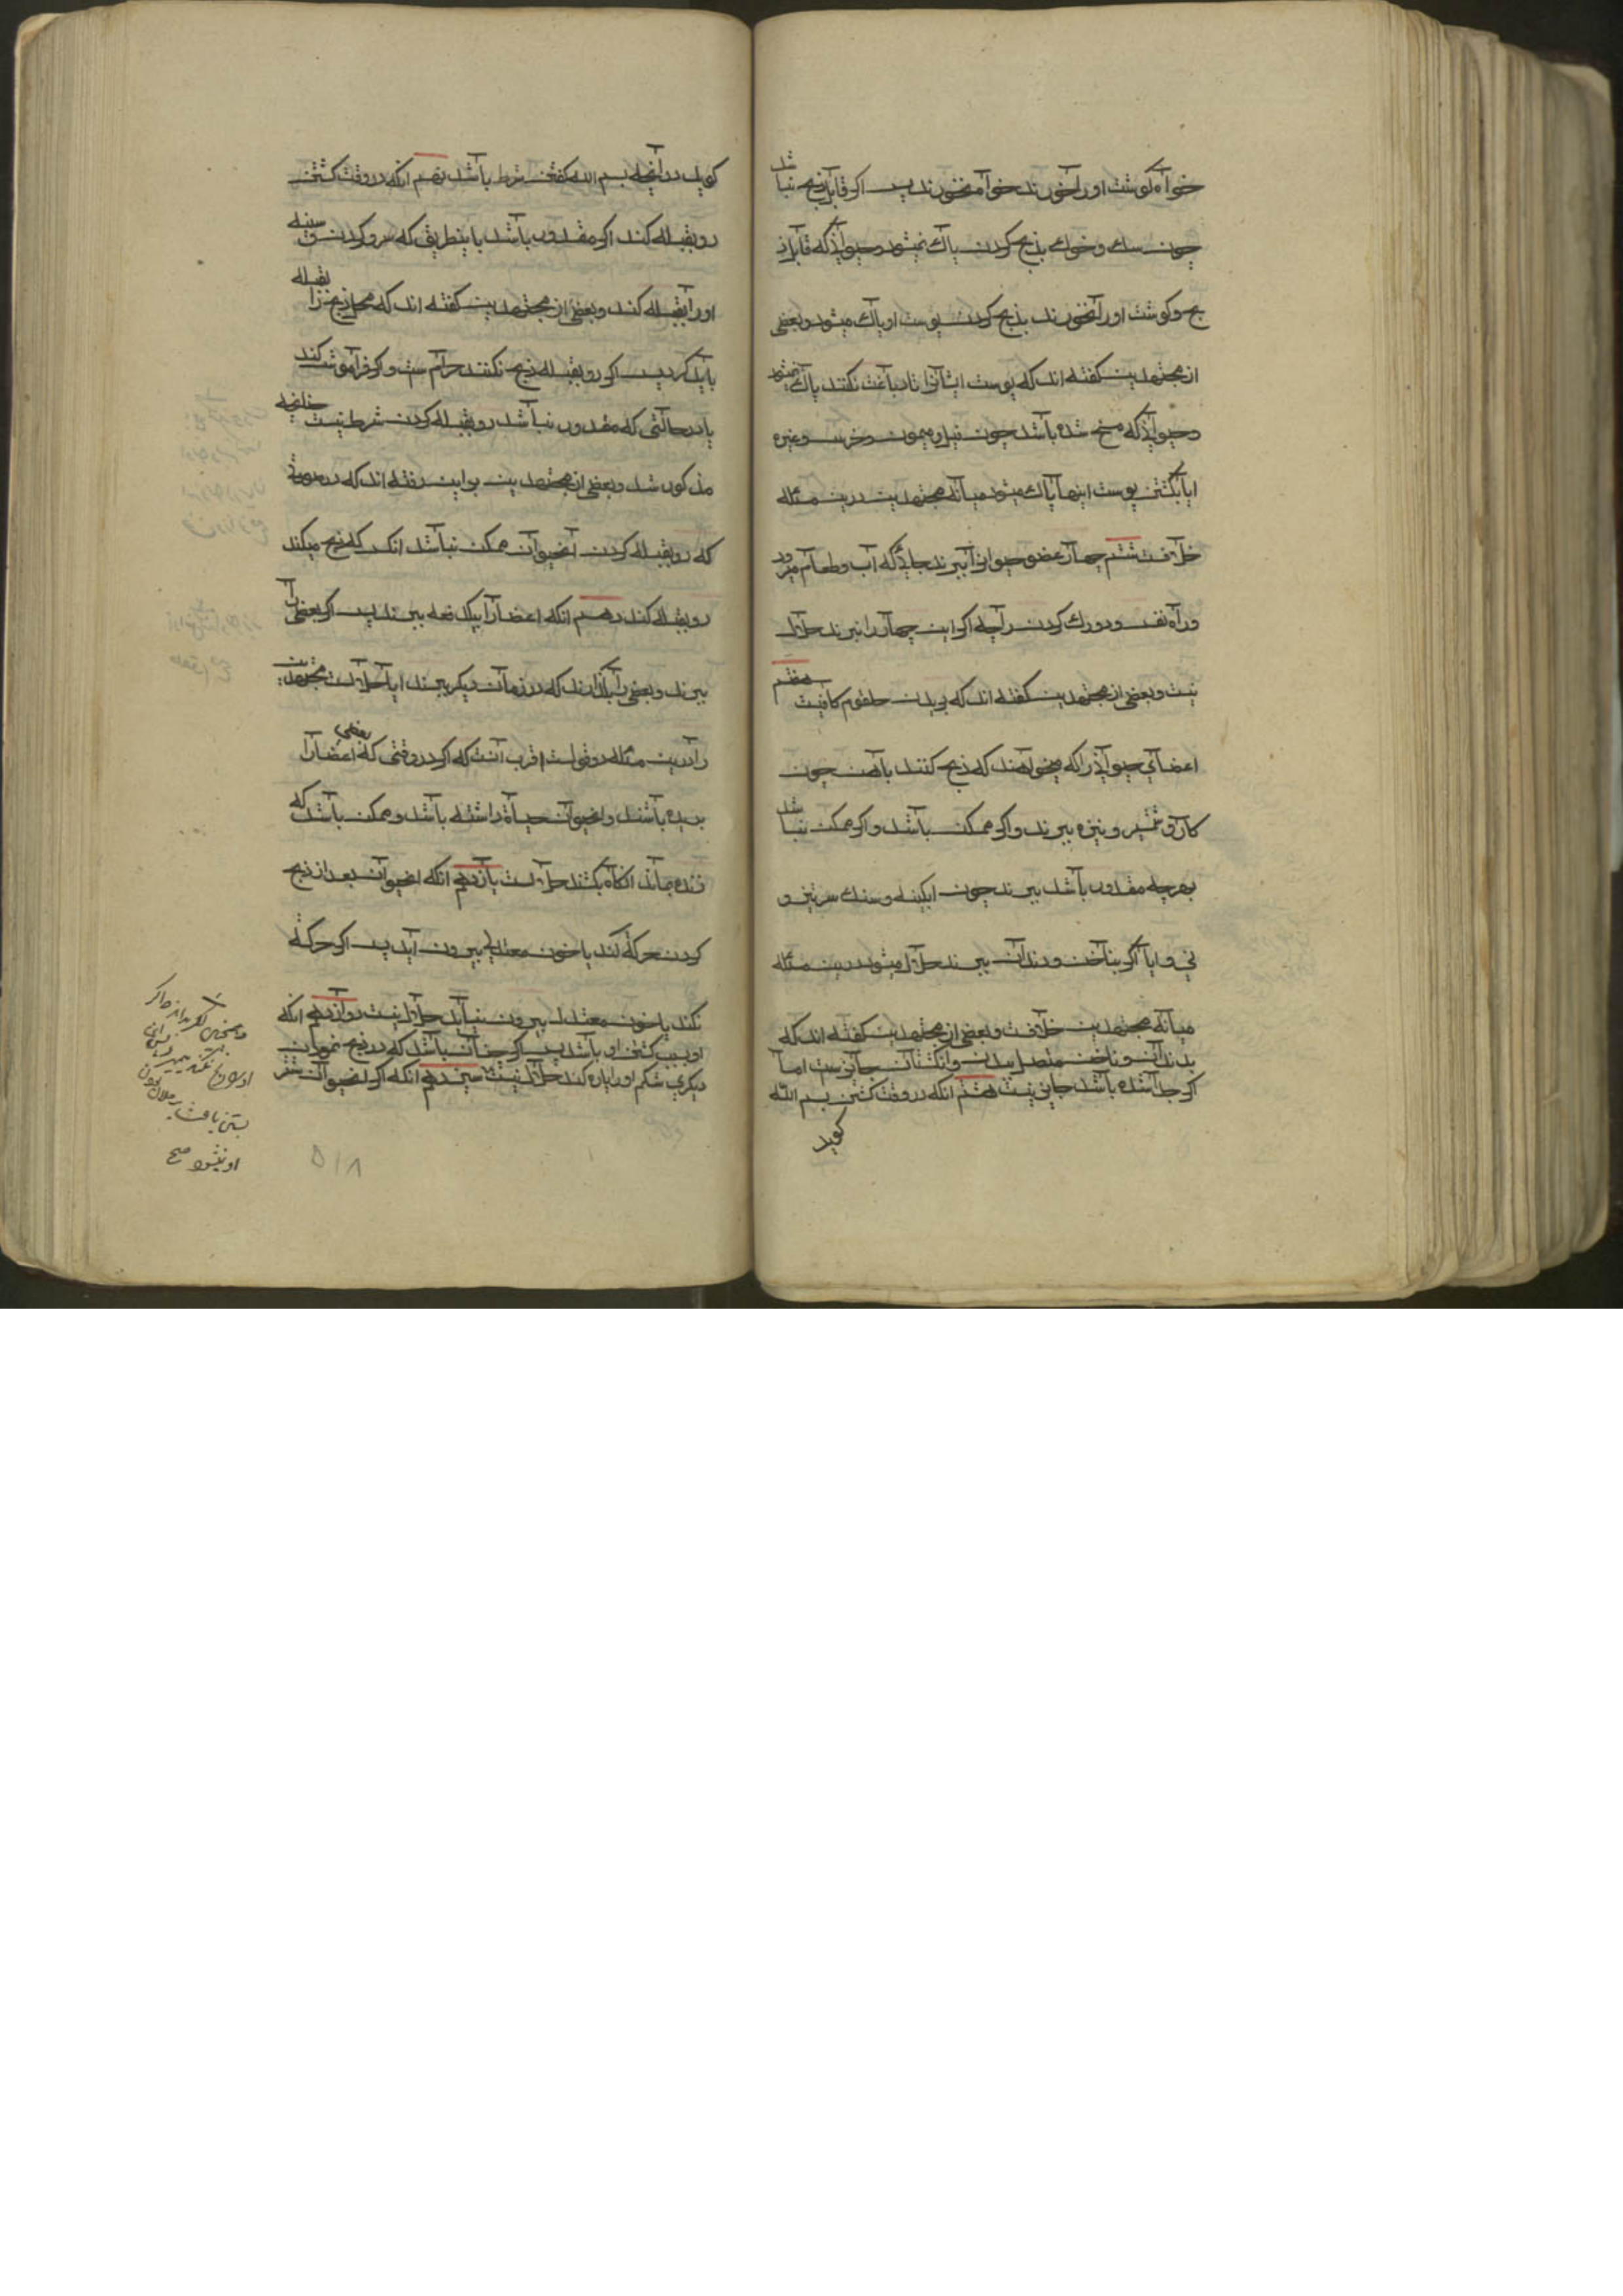 خواه گوشت او را خورند خواه نخورند پس اگر قابل ذبح نباشد
چون سک و خوک بذبح کردن پاک نمیشود و حیوانی که قابل ذ
بح و گوشت او را نخورند بذبح کردن پوست او پاک میشود و بعضی
از مجتهدین گفته اند که پوست ایشانرا تا دباغت نکنند پاک نمیشود
و حیوانی که مسخ شده باشد چون فیل و میمون و خرس و غیره
ایا بکشتن پوست اینها پاک میشود میانه مجتهدین درین مسئله
خلافست ششم چهار عضو حیوانرا ببرند جای که آب و طعام میرود
و راه نفس و دو رک کردن را چه اگر این چهار را نبرند حلال
نیست و بعضی از مجتهدین گفته اند که بریدن حلقوم کافیست هفتم
اعضای حیوانی را که میخواهند که ذبح کنند باهن چون
کارد و شمشیر و نیزه ببرند و اگر ممکن باشد و اگر ممکن نباشد
بهرچه مقدور باشد ببرند چون ابکینه و سنک سرتیز و
نی و ایا اگر بناخن و دندان ببرند حلال میشود درین مسئله
میانه مجتهدین خلافست و بعضی از مجتهدین گفته اند که
بدندان و ناخن متصل بدن و انگشتان جایز ست اما
اگر جدا شده باشد جایز نیست هشتم انکه در وقت کشتن بسم الله
گوید
گوید در آنچه بسم الله گفتن شرط باشد نهم انکه در وقت کشتن
رو بقبله کند اگر مقدور باشد باینطریق که سر و کردن و سینه
او را بقبله کند و بعضی از مجتهدین گفته اند که محل ذبح را بقبله
باید کرد پس اگر رو بقبله ذبح نکنند حرام ست و اگر فراموش کند
یا در حالتی که مقدور نباشد رو بقبله کردن شرط نیست چنانچه
مذکور شد و بعضی از مجتهدین براین رفته اند که در صورتی
که رو بقبله کردن انحیوان ممکن نباشد انکس که ذبح میکند
رو بقبله کند دهم انکه اعضا را بیکدفعه ببرند پس اگر بعضی را
ببرند و بعضی را بگذارند که در زمان دیگر ببرند ایا حلالست مجتهدین
را درین مسئله دو قولست اقرب آنست که اگر در وقتی که بعضی اعضا را
بریده باشند و انحیوان حیاة داشته باشد و ممکن باشد که
زنده بماند انگاه بکشند حلالست یازدهم انکه انحیوان بعد از ذبح
کردن حرکة کند یا خون معتدل بیرون آید پس اگر حرکة
نکند یا خون معتدل بیرون نیاید حلال نیست دوازدهم انکه
او بسبب کشتن او باشد پس اگر چنان باشد که در ذبح نمودن
دیگری شکم او را پاره کند حلال نیست سیزدهم انکه اگر انحیوان شتر
او نیشود صح
۵۱۸